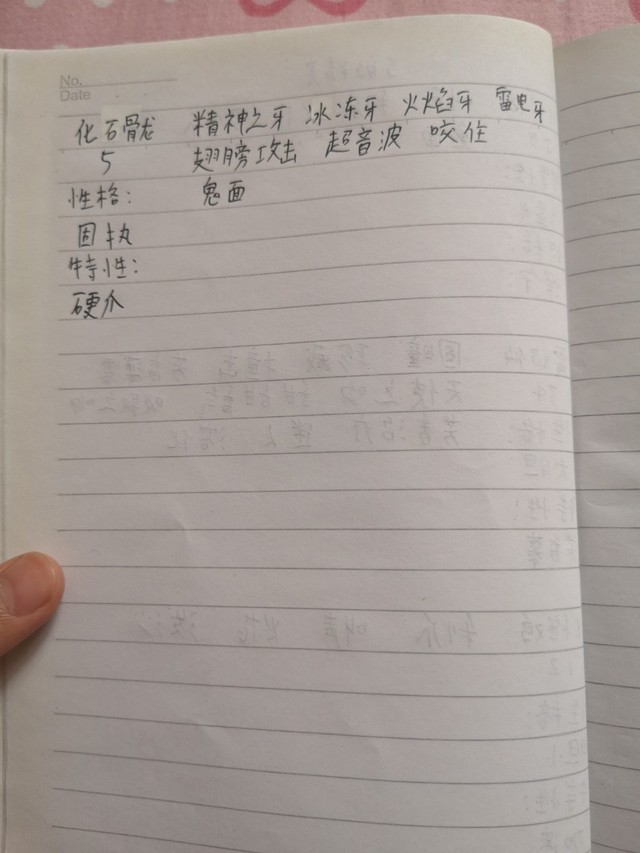 No.
Date
化石骨龙 精神之牙 冰冻牙 火焰牙 雷电牙
5 翅膀攻击 超音波 咬住
性格: 鬼面
固执
特性:
硬爪